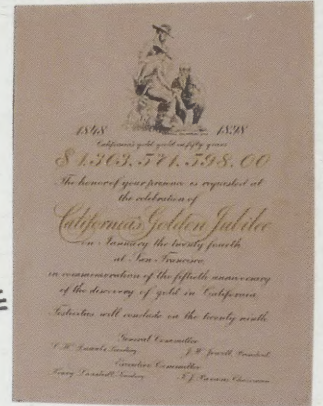 1848 1898
California's gold yield in fifty years
$1,303,571,598.00
The honor of your presence is requested at
the celebration of
California's Golden Jubilee
on January the twenty fourth
at San Francisco
in commemoration of the fiftieth anniversary
of the discovery of gold in California.
Festivities will conclude on the twenty ninth
General Committee
Secretary President
Executive Committee
Secretary Chairman